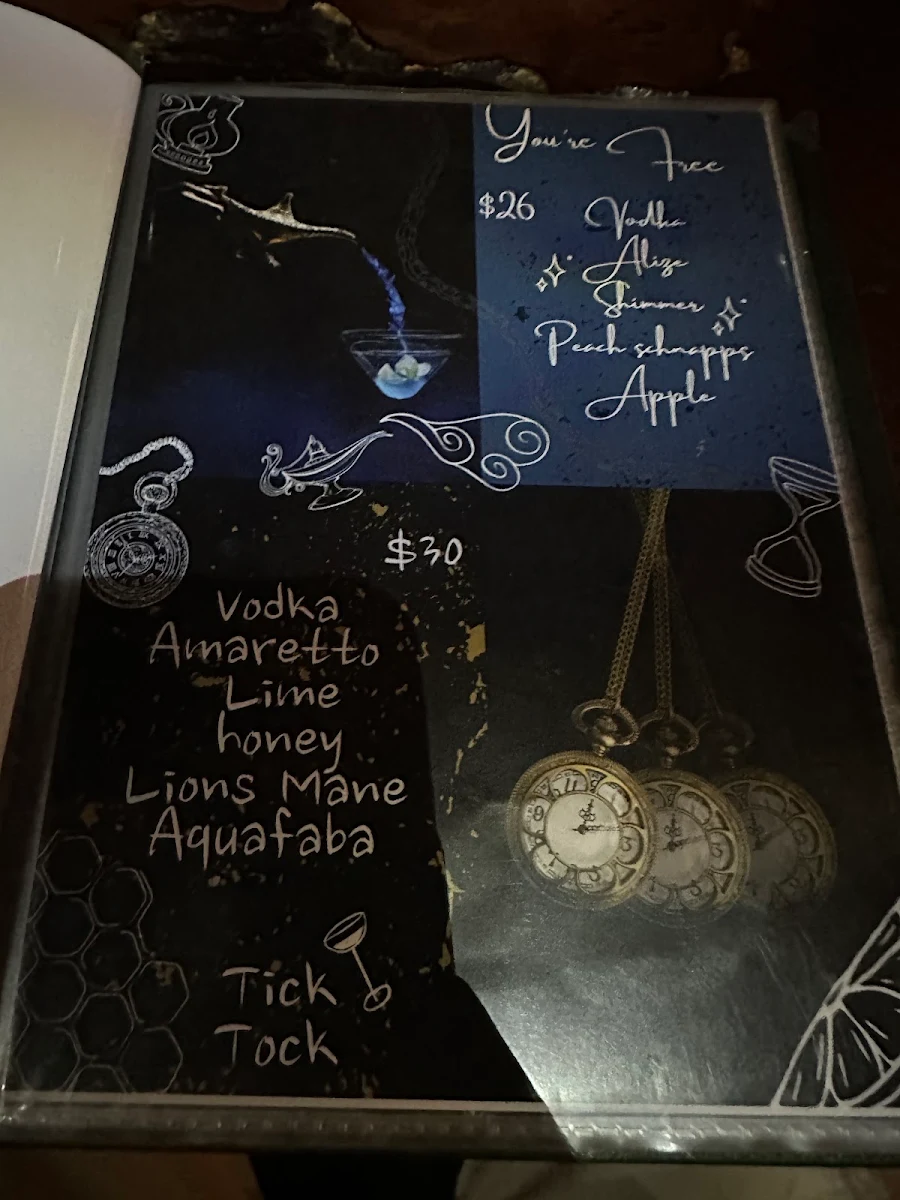 You're Free
$26
Vodka
Alize
Shimmer
Peach schnapps
Apple
$30
Vodka
Amaretto
Lime
honey
Lions Mane
Aquafaba
Tick
Tock